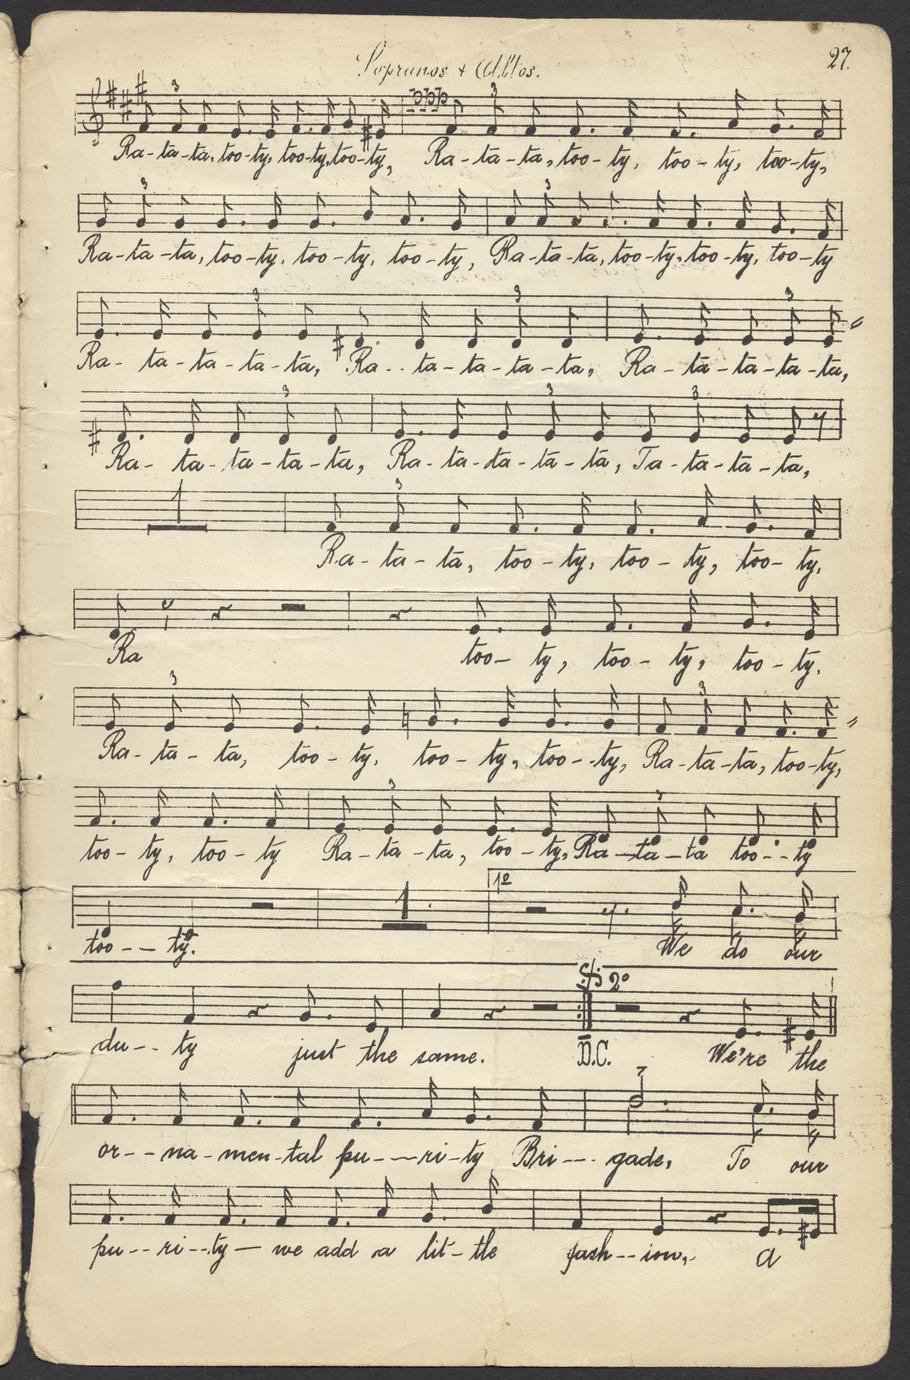 27.
Sopranos + Altos.
Ra-ta-ta, too-ty, too-ty, too-ty, Ra-ta-ta, too-ty, too-ty, too-ty,
Ra-ta-ta, too-ty, too-ty, too-ty, Ra-ta-ta, too-ty, too-ty, too-ty
Ra-ta-ta-ta-ta, Ra--ta-ta-ta-ta, Ra-ta-ta-ta-ta,
Ra-ta-ta-ta-ta, Ra-ta-ta-ta-ta, Ta-ta-ta-ta,
1
Ra-ta-ta, too-ty, too-ty, too-ty.
Ra too-ty, too-ty, too-ty.
Ra-ta-ta, too-ty, too-ty, too--ty, Ra-ta-ta, too-ty,
too-ty, too-ty Ra-ta-ta, too-ty, Ra-ta-ta too--ty
1 1º
too---ty. We do our
2º
du--ty just the same. D.C. We're the
or--na-men-tal pu---ri-ty Bri--gade, To our
pu--ri--ty- we add a lit-tle fash--ion, a